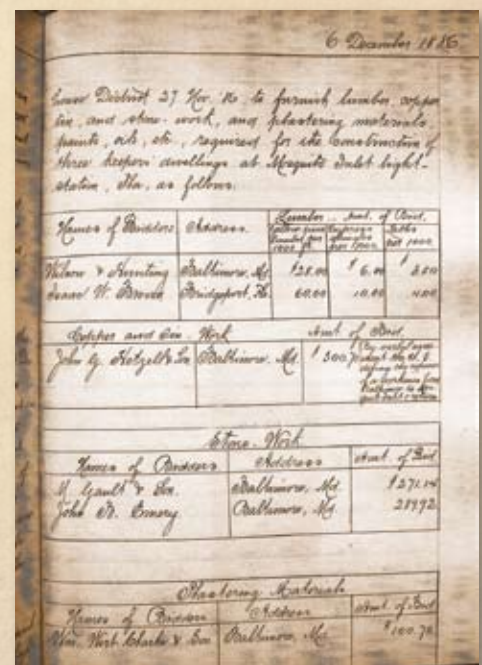 6 December 1886
District 27 Nov. '86, to furnish lumber, copper
tin, and stone-work, and plastering materials
paints, oils, etc., required for the construction of
three keepers dwellings at Mosquito Inlet light-
station, Fla., as follows:
Lumber Amt. of Bid.
Names of Bidders Address Yellow pine per 1000 ft. Cypress shingles per 1000 Laths per 1000
Wilson & Hunting Baltimore, Md. $28.00 $6.00 $3.00
Isaac W. Bridgeport, 60.00 10.00 4.00
Copper and Tin-Work Amt. of Bid.
John G. Hetzell & Son Baltimore, Md. $300.
Stone-Work
Names of Bidders Address Amt. of Bid
M Gault & Son Baltimore, Md. $271.14
John R. Emery Baltimore, Md. 289.92
Plastering Materials
Names of Bidders Address Amt. of Bid
Wm. Wirt Clarke & Son Baltimore, Md. $100.70